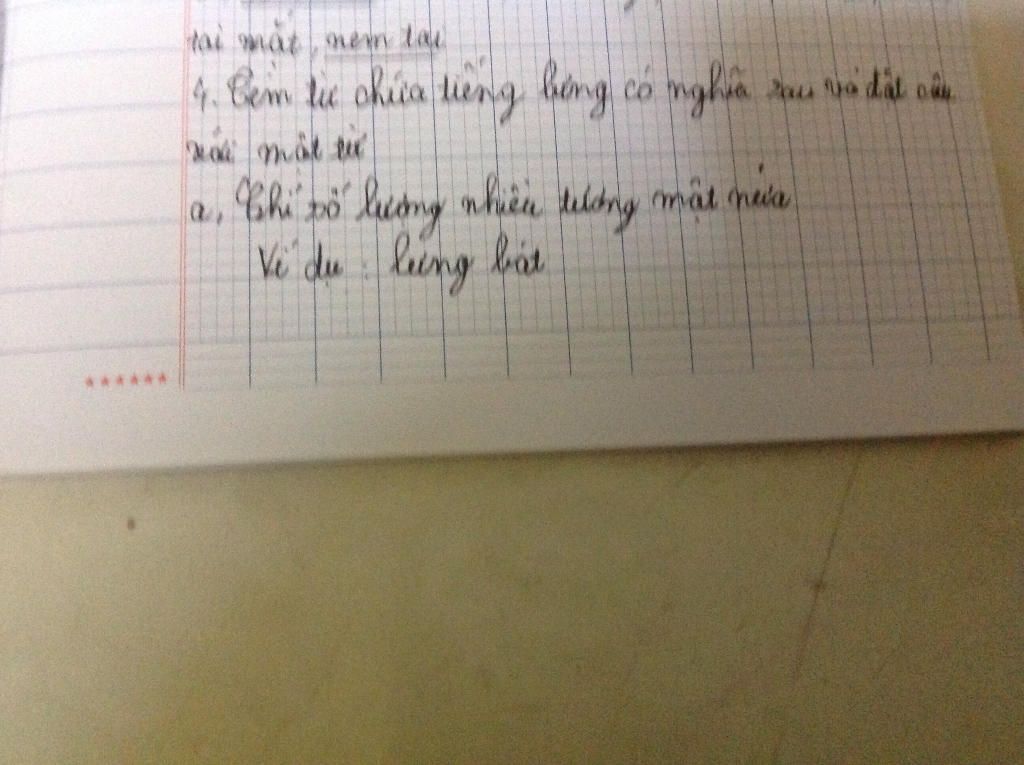 tai mắt, nem tai
4. Tìm từ chứa tiếng lưng có nghĩa sau và đặt câu
với một từ
a, Chỉ số lượng nhiều tương một nửa
Ví dụ : lưng bát